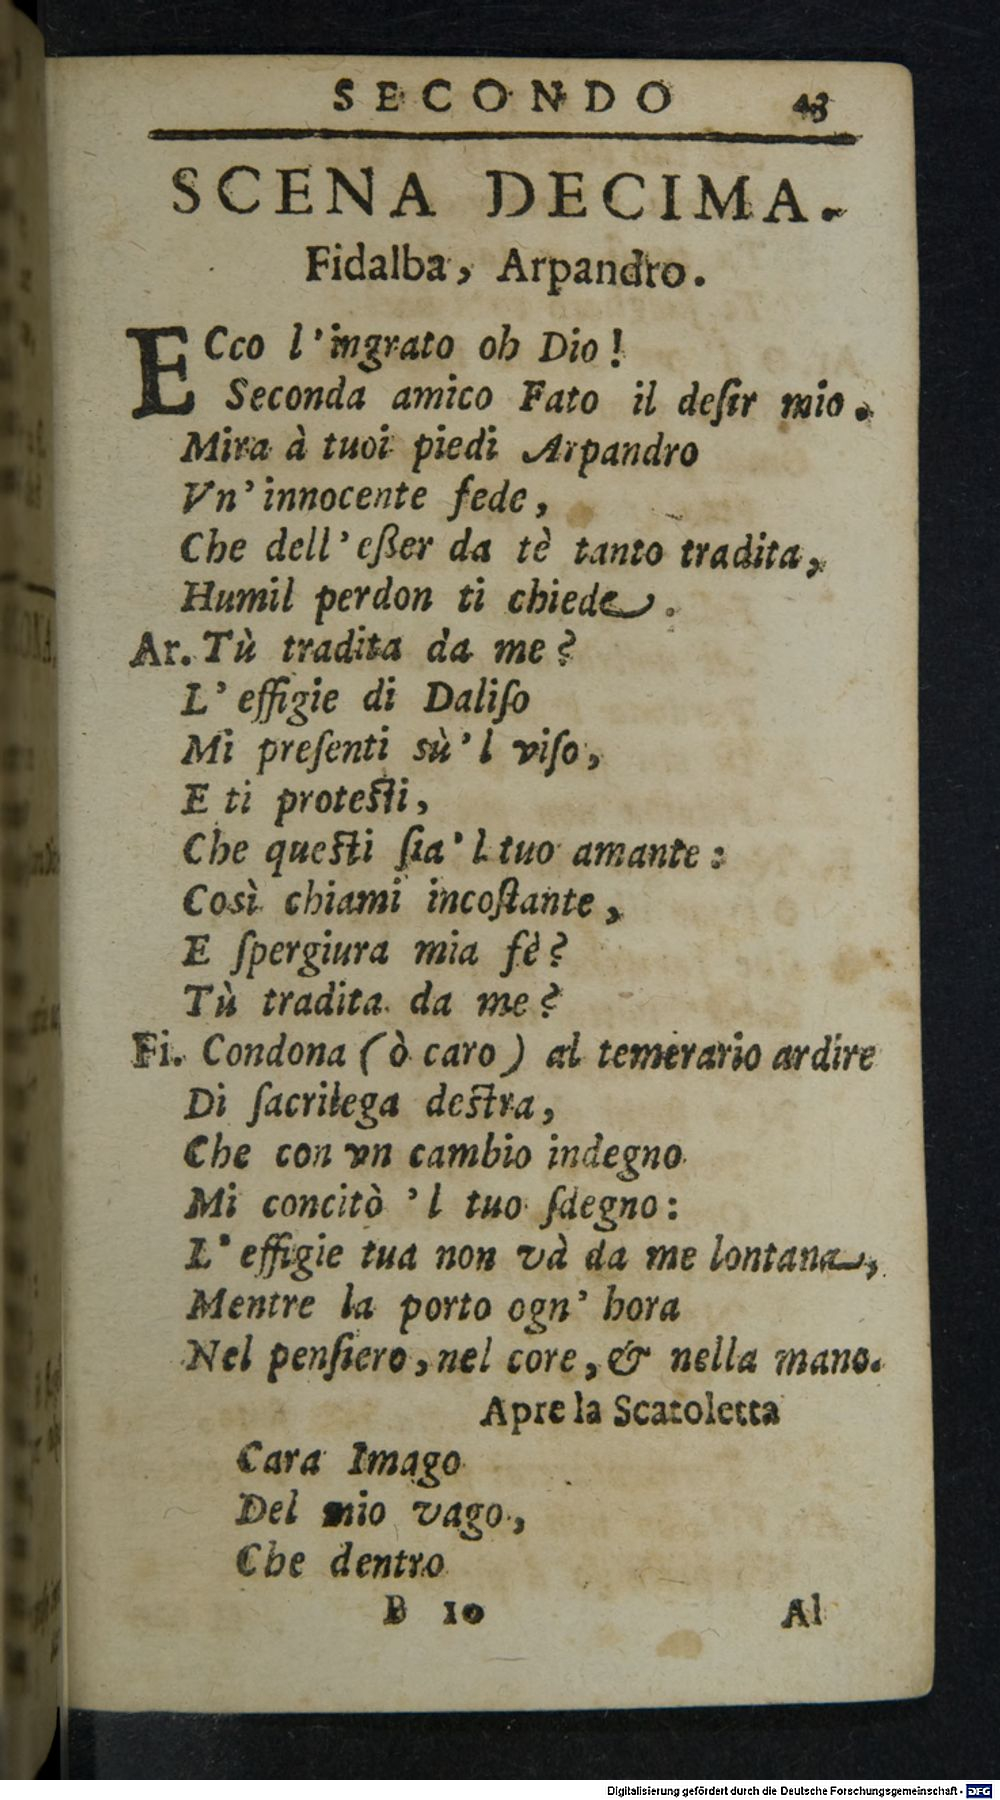 SECONDO 43
SCENA DECIMA.
Fidalba, Arpandro.
ECco l'ingrato oh Dio!
Seconda amico Fato il deſir mio.
Mira à tuoi piedi Arpandro
Vn'innocente fede,
Che dell'eßer da tè tanto tradita,
Humil perdon ti chiede.
Ar. Tù tradita da me?
L'effigie di Daliſo
Mi preſenti sù'l viſo,
E ti proteſti,
Che queſti ſia'l tuo amante:
Così chiami incoſtante,
E ſpergiura mia fè?
Tù tradita da me?
Fi. Condona (ò caro) al temerario ardire
Di ſacrilega deſtra,
Che con vn cambio indegno
Mi concitò 'l tuo ſdegno:
L'effigie tua non và da me lontana,
Mentre la porto ogn'hora
Nel penſiero, nel core, & nella mano.
Apre la Scatoletta
Cara Imago
Del mio vago,
Che dentro
B 10 Al
Digitalisierung gefördert durch die Deutsche Forschungsgemeinschaft - DFG